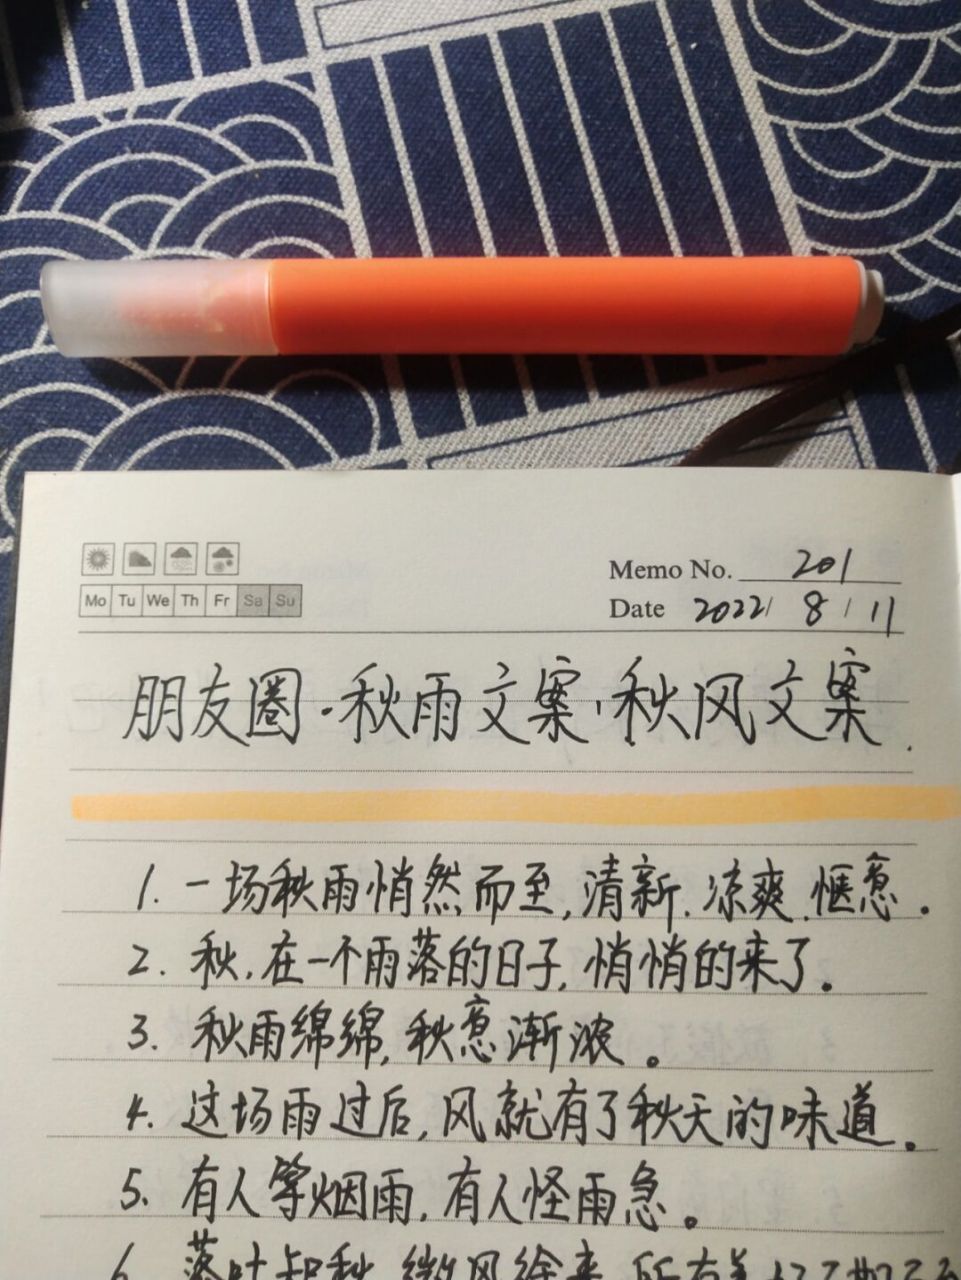 Memo No. 201
Mo Tu We Th Fr Sa Su
Date 2022/ 8 / 11
朋友圈·秋雨文案,秋风文案.
1. 一场秋雨悄然而至,清新.凉爽.惬意.
2. 秋,在一个雨落的日子,悄悄的来了。
3. 秋雨绵绵,秋意渐浓。
4. 这场雨过后,风就有了秋天的味道。
5. 有人等烟雨,有人怪雨急。
6. 落叶知秋,微风徐来,所有美好